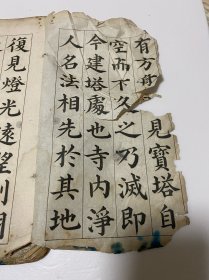 有方舟
見寶塔自
空而下久之乃滅即
今建塔處也寺內淨
人名法相先於其地
復見燈光遠望則明